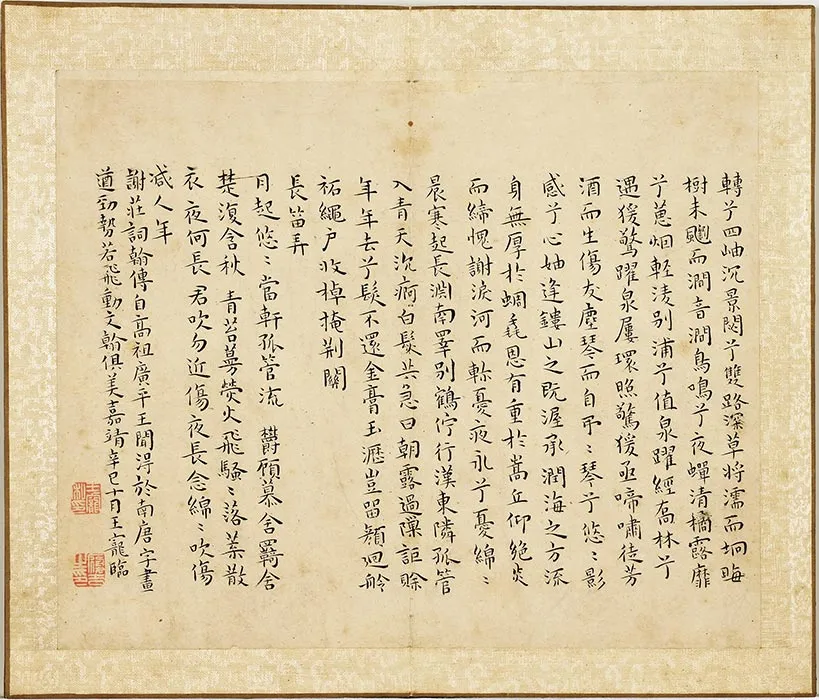 轉兮四岫沉景閟兮雙路深草將濡而坰晦
樹未飂而澗音澗鳥鳴兮夜蟬清橘露靡
兮蕙烟輕淩別浦兮值泉躍經喬林兮
遇猨驚躍泉屢環照驚猨亟啼嘯徒芳
酒而生傷友塵琴而自弔〻琴兮悠〻影
感兮心妯逢鏤山之既渥承潤海之方流
身無厚於蜩毳恩有重於嵩丘仰絕炎
而締愧謝淚河而軫憂夜永兮憂綿〻
晨寒起長淵南睪別鶴佇行漢東隣孤管
入青天沉痾白髮共急日朝露過隟詎賒
年年去兮髮不還金膏玉瀝豈留顏廻舲
祏繩戶收棹掩荆關
長笛弄
月起悠〻當軒孤管流 鬱顧慕含羈含
楚復含秋 青苔蔓熒火飛騷〻落葉散
衣夜何長君吹勿近傷夜長念綿〻吹傷
減人年
謝莊詞翰傳自高祖廣平王聞淂於南唐字畫
遒勁勢若飛動文翰俱美嘉靖辛巳十月王寵臨